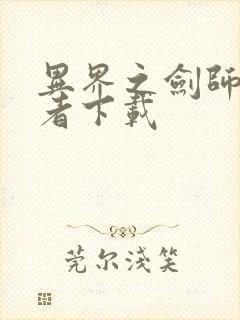 異界之劍師
者下載
莞尔淺笑